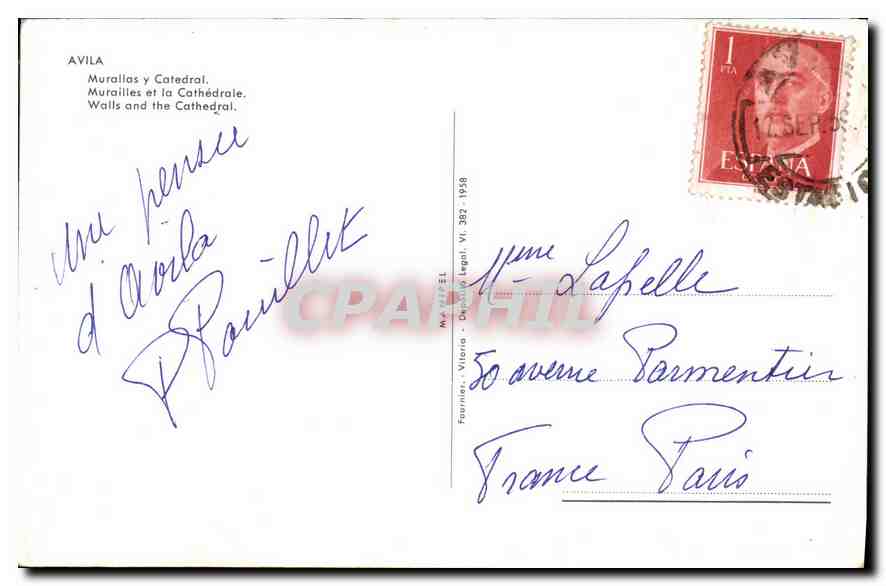 AVILA
Murallas y Catedral.
Murailles et la Cathédrale.
Walls and the Cathedral.
une pensée
d'Avila
P Pouillet
MANIPEL
Fournier. - Vitoria - Depósito Legal. VI. 382 - 1958
1
PTA
ESPAÑA
12. SEP. 59
CPAPHIL
Mme Lapelle
50 avenue Parmentier
France Paris